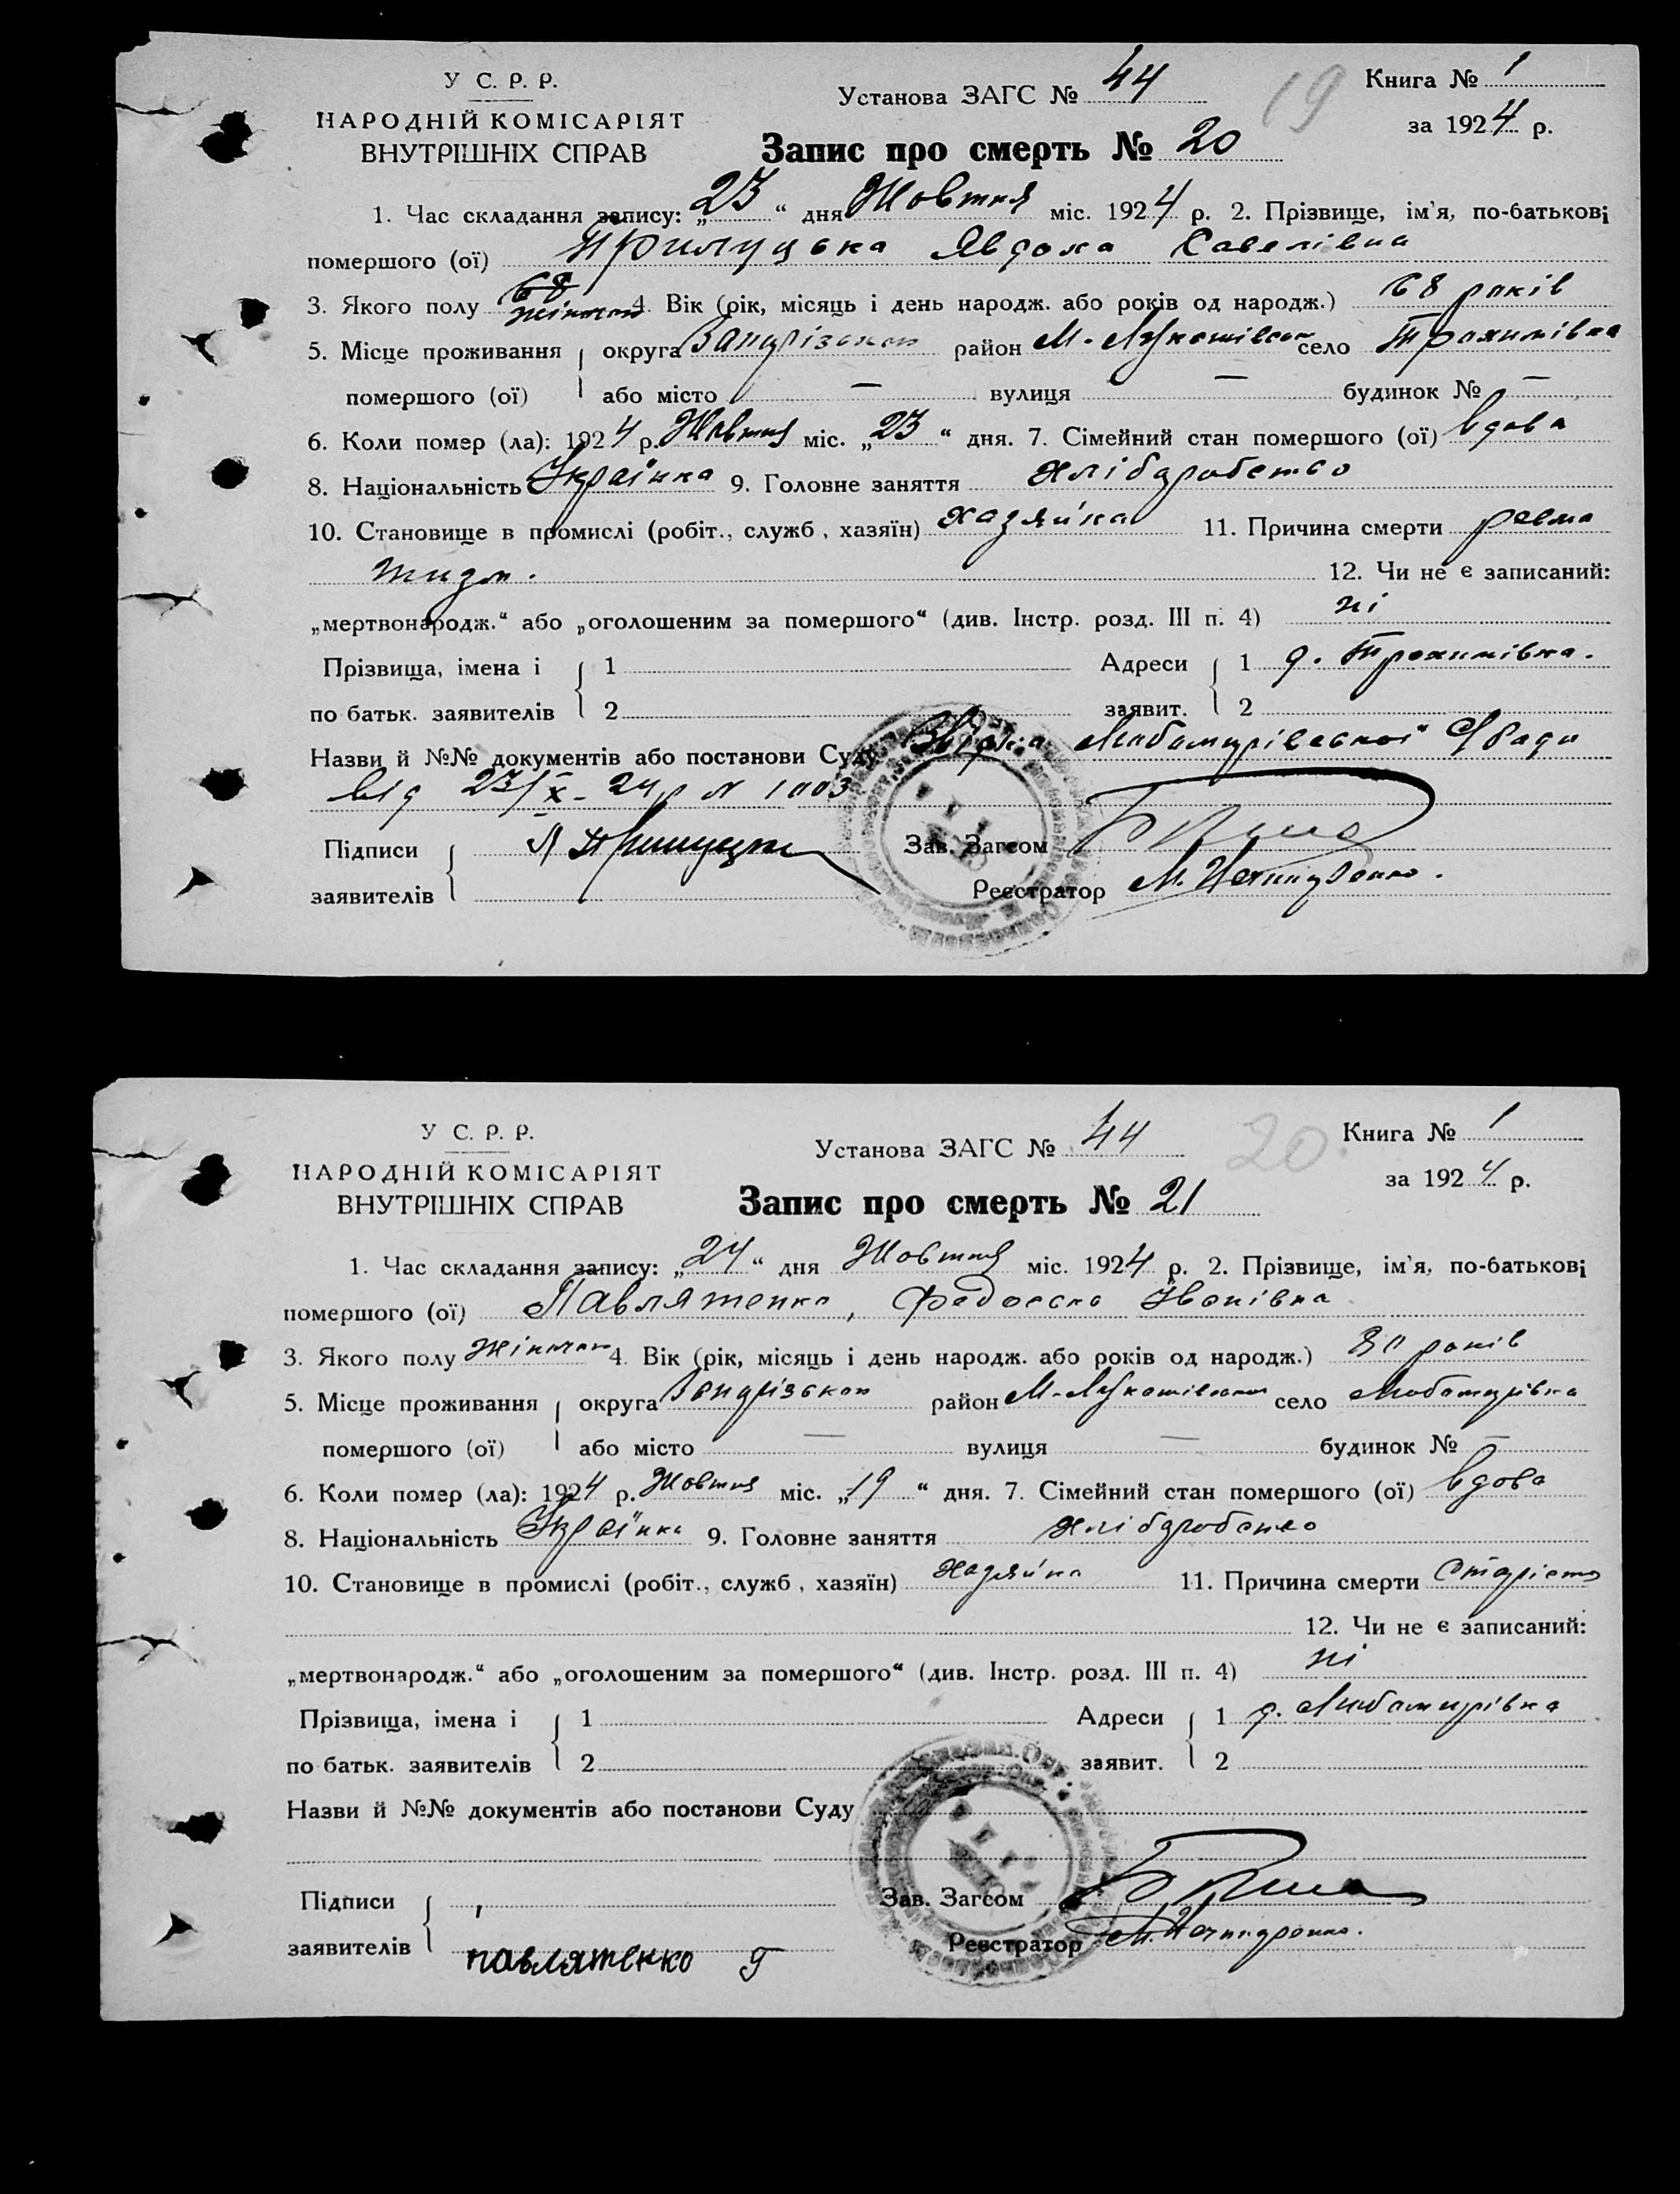 У С. Р. Р.
НАРОДНІЙ КОМІСАРІЯТ
ВНУТРІШНІХ СПРАВ
Установа ЗАГС № 44
19
Книга № 1
за 1924 р.
Запис про смерть № 20
1. Час складання запису: „23“ дня Жовтня міс. 1924 р. 2. Прізвище, ім'я, по-батькові
помершого (ої) Прилуцька Явдоха Савелівна
68
3. Якого полу жіночої 4. Вік (рік, місяць і день народж. або років од народж.) 68 років
5. Місце проживання округа Запорізької район М-Лукашівськ село Трохимівка
помершого (ої) або місто — вулиця — будинок № —
6. Коли помер (ла): 1924 р. Жовтня міс. „23“ дня. 7. Сімейний стан помершого (ої) вдова
8. Національність Українка 9. Головне заняття хліборобство
10. Становище в промислі (робіт., служб, хазяїн) хазяйка 11. Причина смерти ревма
тизм. 12. Чи не є записаний:
„мертвонародж.“ або „оголошеним за помершого“ (див. Інстр. розд. III п. 4) ні
Прізвища, імена і 1 Адреси 1 д. Трохимівка.
по батьк. заявителів 2 заявит. 2
Назви й №№ документів або постанови Суду Любомирівської С/Ради
від 23/X-24 р N 1003
Підписи Зав. Загсом
заявителів Реєстратор
У С. Р. Р.
НАРОДНІЙ КОМІСАРІЯТ
ВНУТРІШНІХ СПРАВ
Установа ЗАГС № 44
20.
Книга № 1
за 1924 р.
Запис про смерть № 21
1. Час складання запису: „24“ дня Жовтня міс. 1924 р. 2. Прізвище, ім'я, по-батькові
помершого (ої) Павлятенко, Федосся Іванівна
3. Якого полу жіночої 4. Вік (рік, місяць і день народж. або років од народж.) 80 років
5. Місце проживання округа Запорізької район М-Лукашівської село Любомирівка
помершого (ої) або місто — вулиця — будинок № —
6. Коли помер (ла): 1924 р. Жовтня міс. „19“ дня. 7. Сімейний стан помершого (ої) вдова
8. Національність Українка 9. Головне заняття хліборобство
10. Становище в промислі (робіт., служб, хазяїн) хазяйка 11. Причина смерти старість
12. Чи не є записаний:
„мертвонародж.“ або „оголошеним за помершого“ (див. Інстр. розд. III п. 4) ні
Прізвища, імена і 1 Адреси 1 д. Любомирівка
по батьк. заявителів 2 заявит. 2
Назви й №№ документів або постанови Суду
Підписи Зав. Загсом
заявителів павлятенко Г Реєстратор